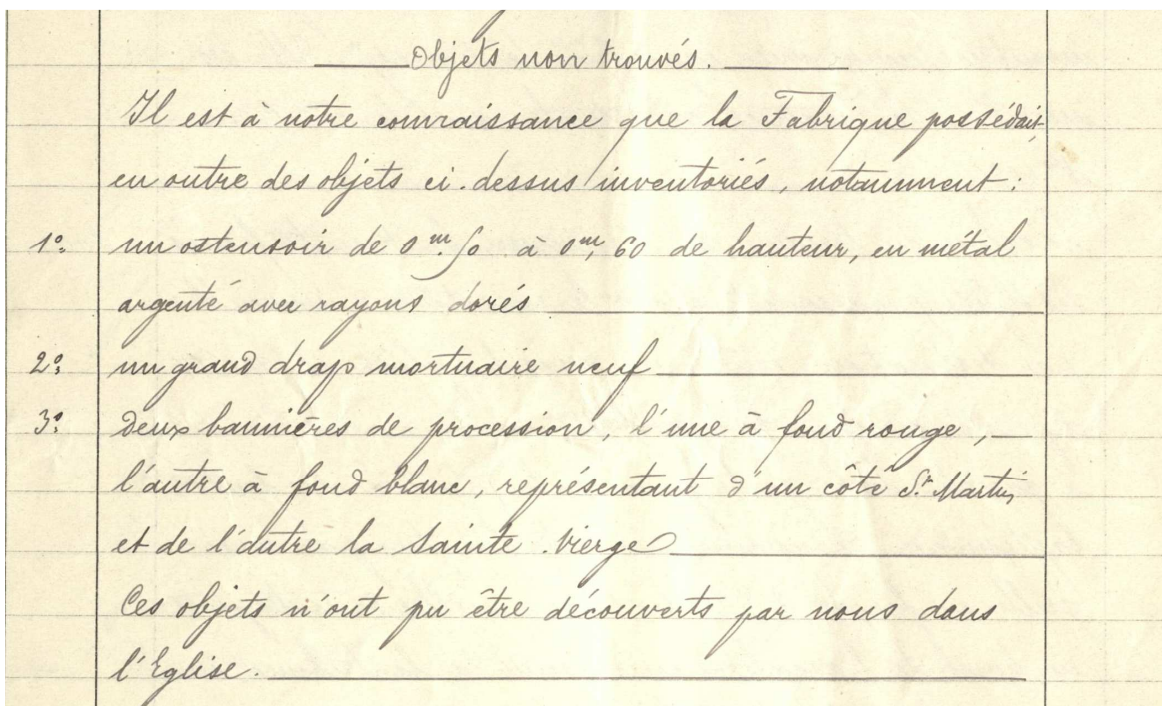 Objets non trouvés.
Il est à notre connaissance que la Fabrique possédait,
en outre des objets ci-dessus inventoriés, notamment :
1º. un ostensoir de 0 m. 50 à 0 m, 60 de hauteur, en métal
argenté avec rayons dorés
2º. un grand drap mortuaire neuf
3º. deux bannières de procession, l'une à fond rouge, —
l'autre à fond blanc, représentant d'un côté St. Martin,
et de l'autre la Sainte Vierge
Ces objets n'ont pu être découverts par nous dans
l'Eglise.